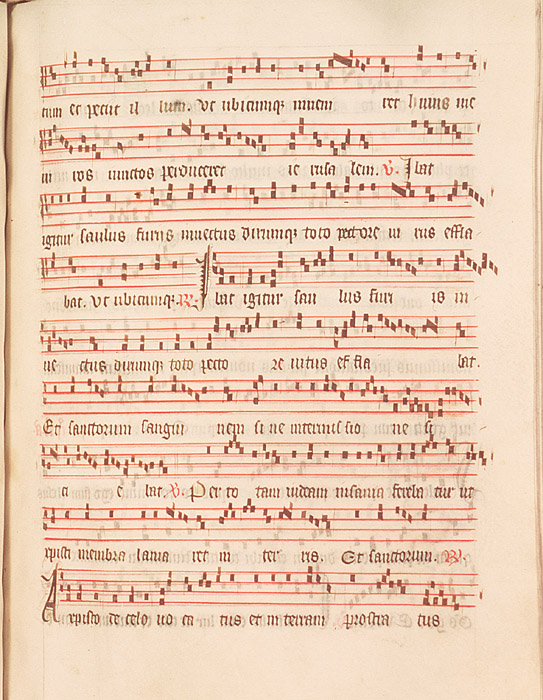 cum et petiit il lum. Vt ubicumq; inuem ret huius uie
ui ros uinctos perduceret ie rusa lem. V. Ibat
igitur saulus furijs inuectus dirumq; toto pectore ui rus effla
bat. Vt ubicumq; R. Ibat igitur sau lus furi is in
ue ctus dirumq; toto pecto re uirus ef fla bat.
Et sanctorum sangui nem si ne intermis sio ne si
ti e bat. V. Per to tam iudeam insania ferebatur ut
xpisti membra lania ret in ter ris. Et sanctorum. R.
A xpisto de celo uo ca tus et in terram prostra tus